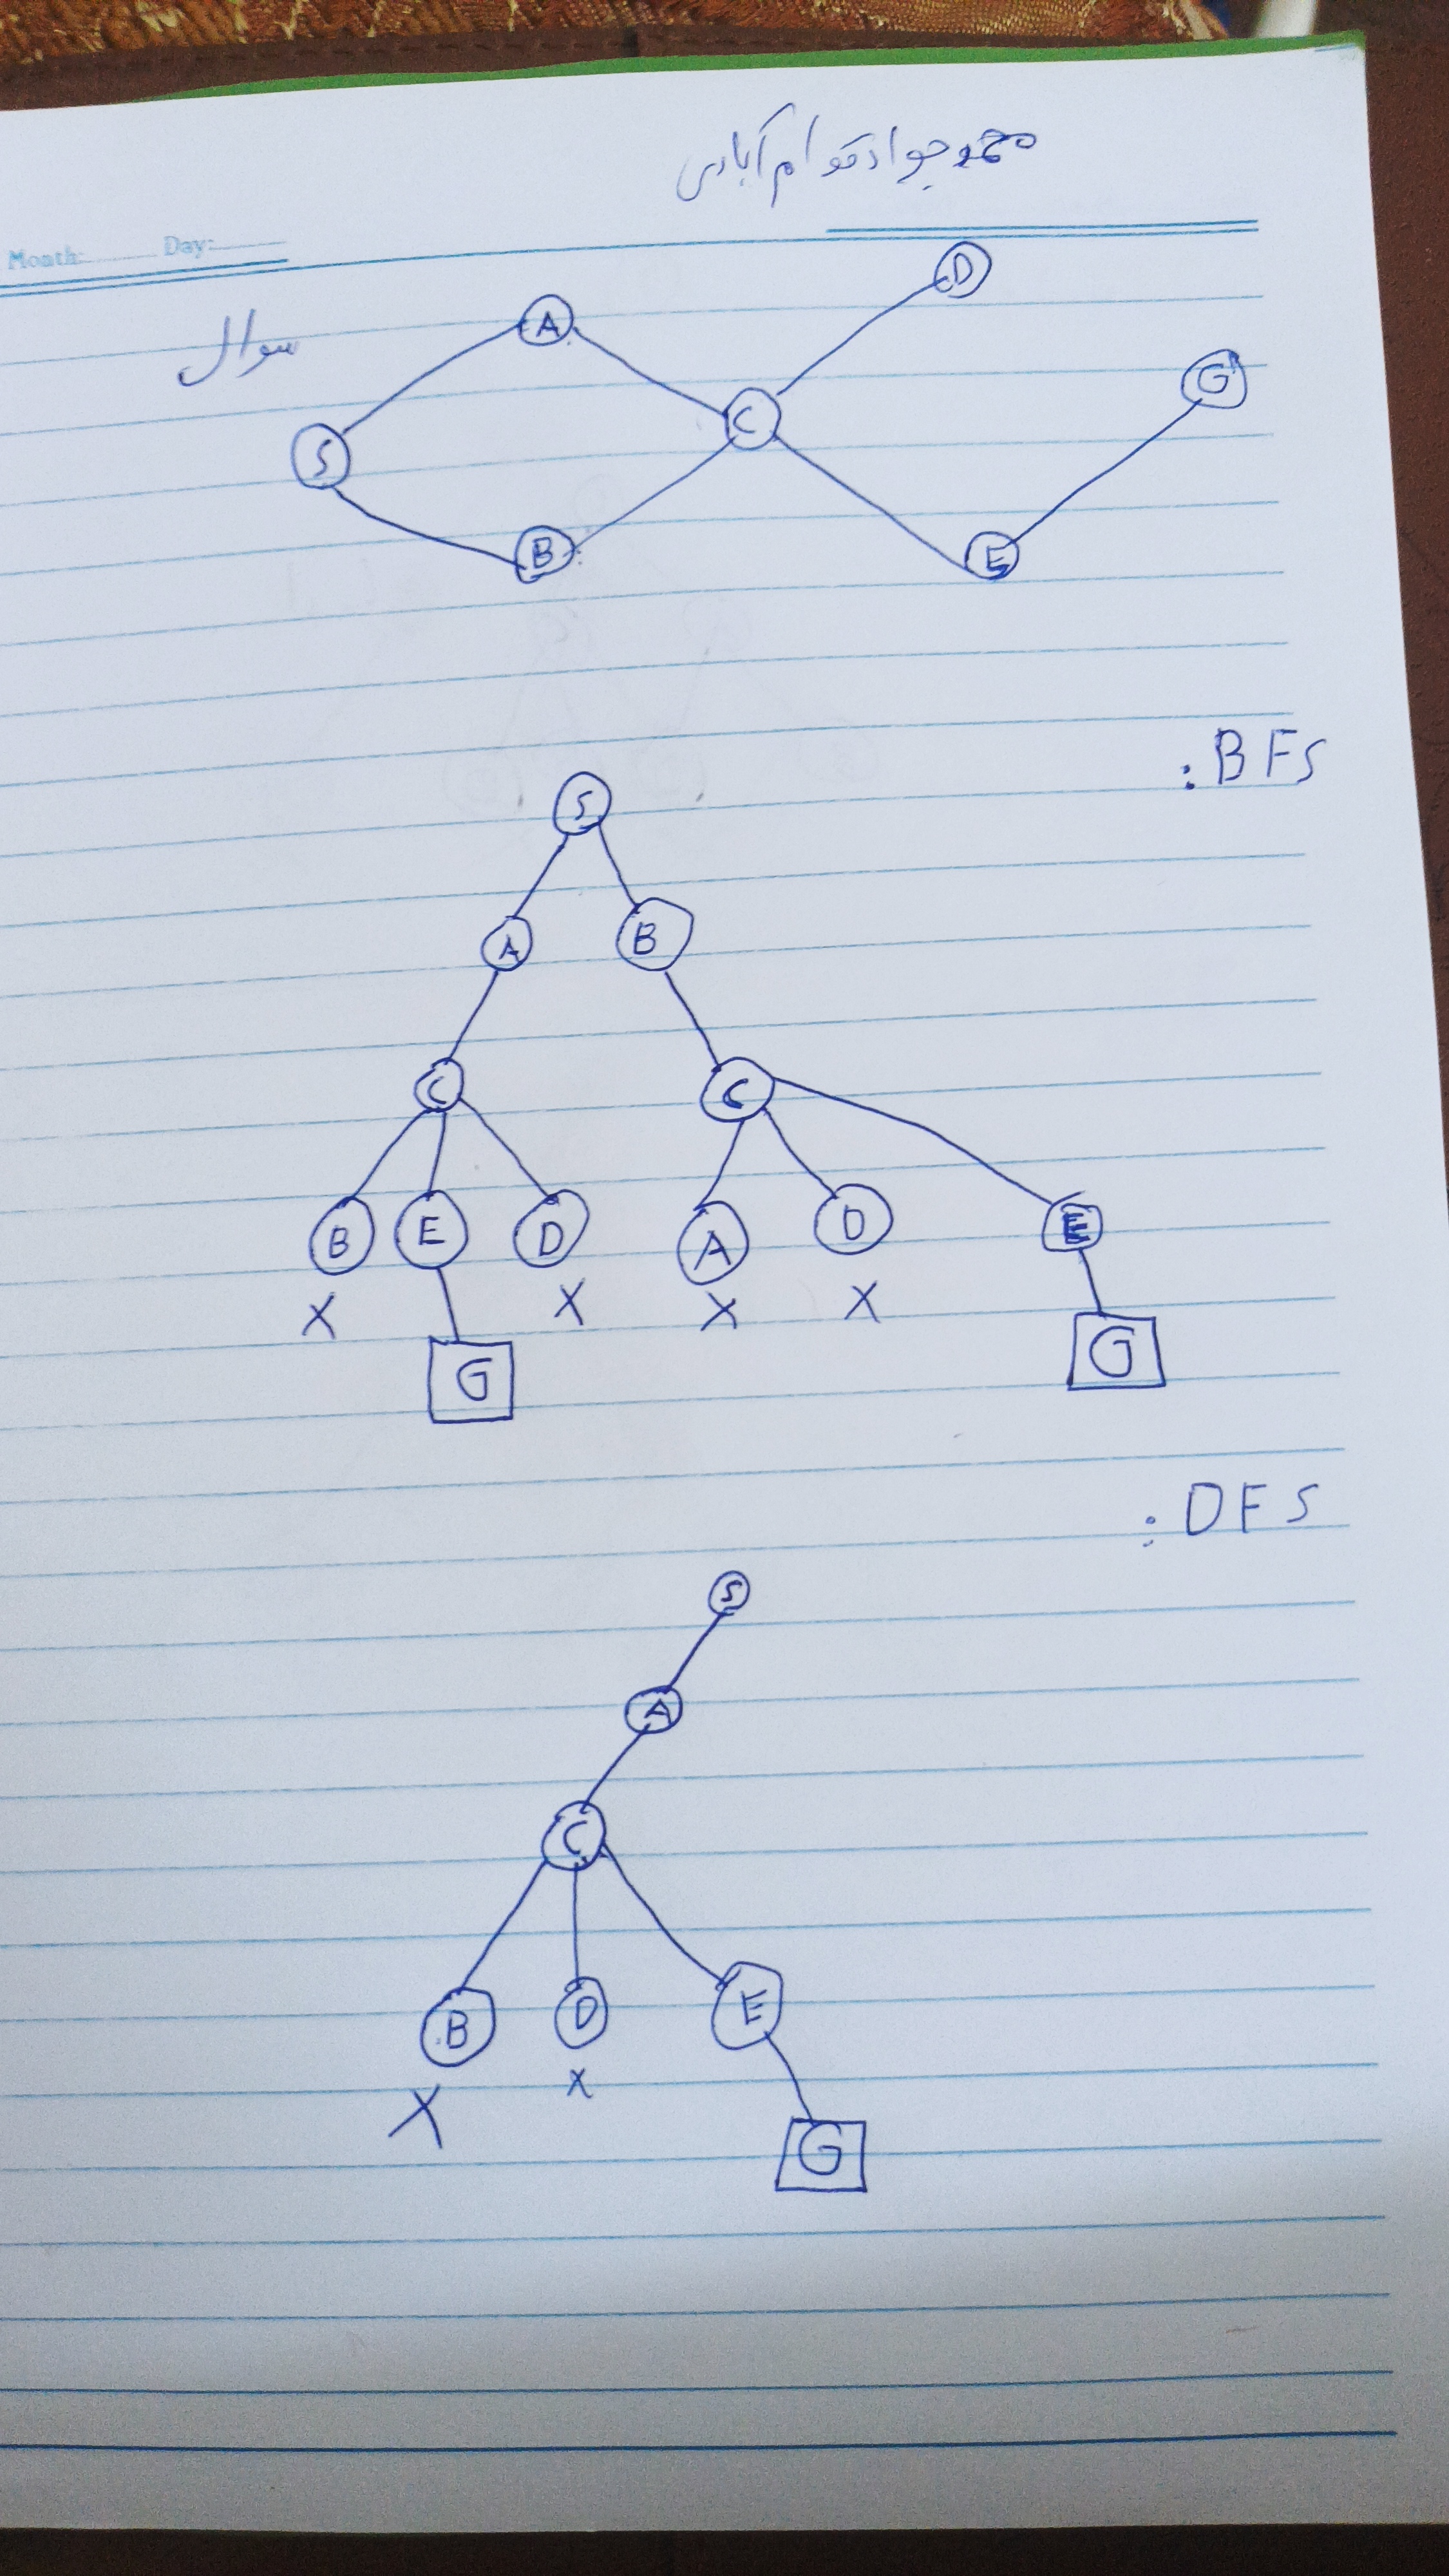 محمد جواد قوام آبادی
Month: Day:
سوال
D
A
G
C
S
B
E
BFS:
S
A B
C C
B E D A D E
X X X X
G G
DFS:
S
A
C
B D E
X X
G